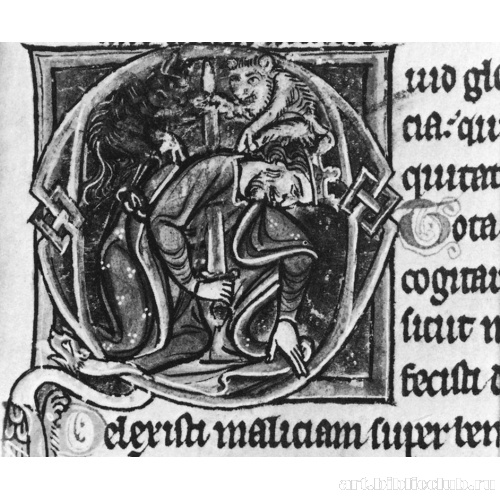 Quid glo
cia: qui
quitat
Tota
cogitau
sicut n
fecisti d
Dilexisti maliciam super ben
art.biblioclub.ru